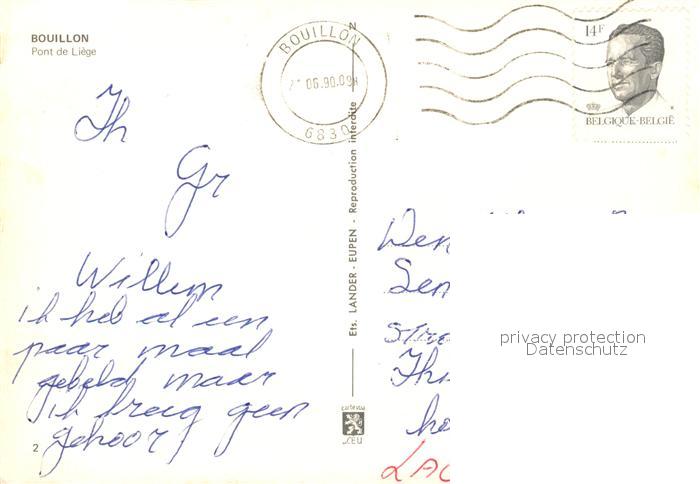 BOUILLON
Pont de Liège
BOUILLON
06.90.09H
6830
14F
BELGIQUE-BELGIË
Th
Gr
Willem
ik heb al een
paar maal
gebeld maar
ik kreeg geen
gehoor
2
Ets. LANDER - EUPEN - Reproduction interdite
N
carte vue
CEU
privacy protection
Datenschutz